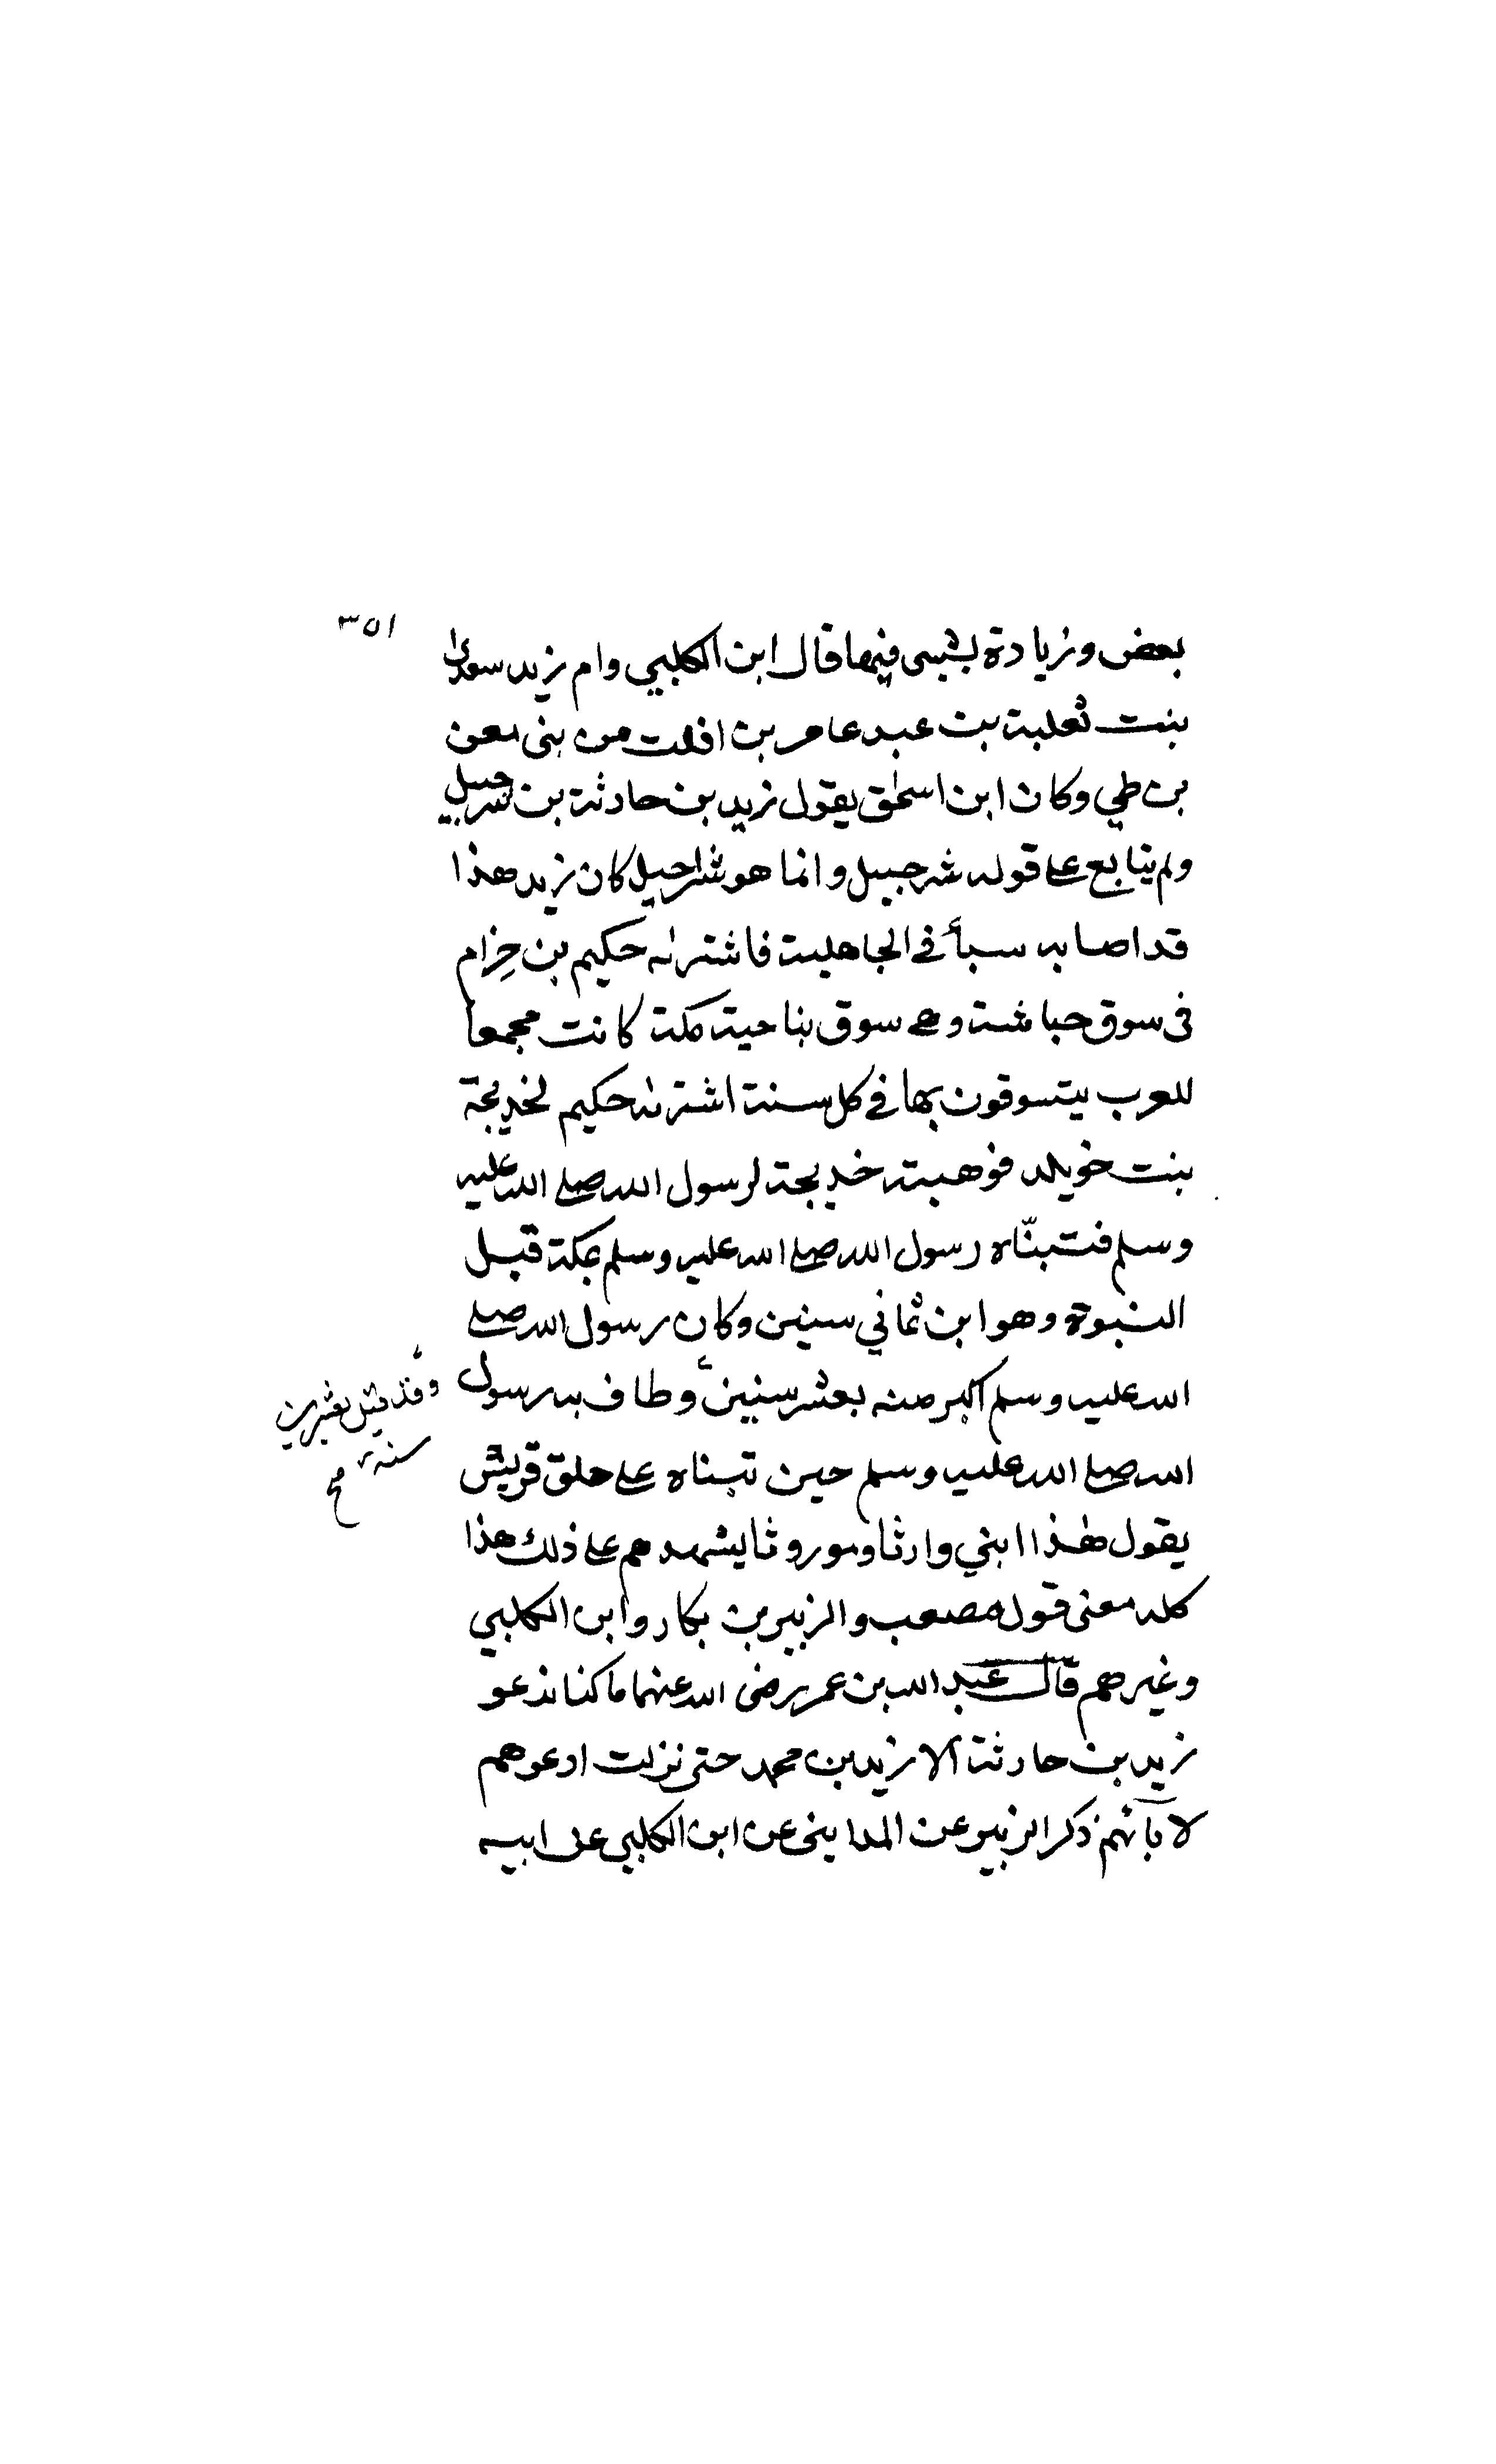 ٣٥١
بعض وزيادة بشيى فيها قال ابن الكلبي وام زيد سعدى
بنت ثعلبة بن عبد عامر بن افلت من بنى معن
بن طي وكان ابن اسحٰق يقول زيد بن حارثة بن شرحبيل
ولم يتابع على قوله شرحبيل وانما هو شراحيل كان زيد هذا
قد اصابه سبأ في الجاهلية فاشتراه حكيم بن حِزام
في سوق حباشة وهي سوق بناحية مكة كانت مجمعا
للعرب يتسوقون بها في كل سنة اشتراه حكيم لخديجة
بنت خويلد فوهبته خديجة لرسول الله صلى الله عليه
وسلم فتبنّاه رسول الله صلى الله عليه وسلم بمكة قبل
النبوة وهو ابن ثماني سنين وكان رسول الله صلى
الله عليه وسلم اكبر منه بعشر سنين وطاف به رسول
وقد قيل بعشرين
سنة صح
الله صلى الله عليه وسلم حين تبناه على حلق قريش
يقول هٰذا ابني وارثا وموروثا يشهدهم على ذلك هذا
كله معنى قول مصعب والزبير بن بكار وابن الكلبي
وغيرهم قال عبد الله بن عمر رضى الله عنهما ما كنا ندعو
زيد بن حارثة الا زيد بن محمد حتى نزلت ادعوهم
لآبائهم ذكر الزبير عن المداينى عن ابن الكلبي عن ابيه